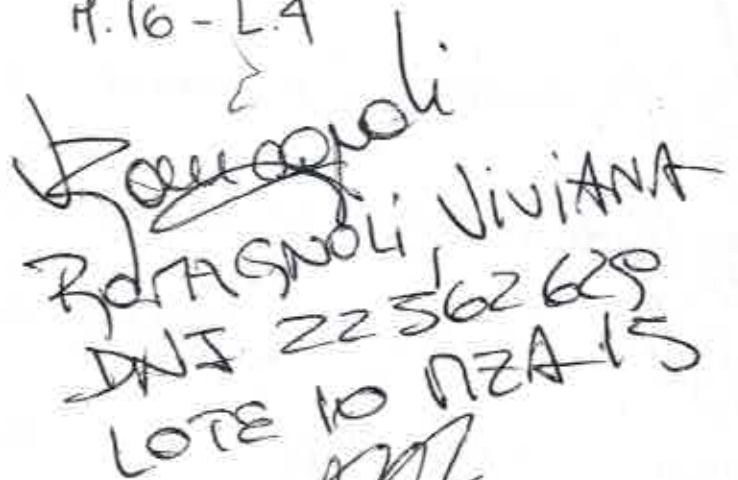 M.16 - L.4
Romagnoli
ROMAGNOLI VIVIANA
DNI 22562629
LOTE 10 MZA 15